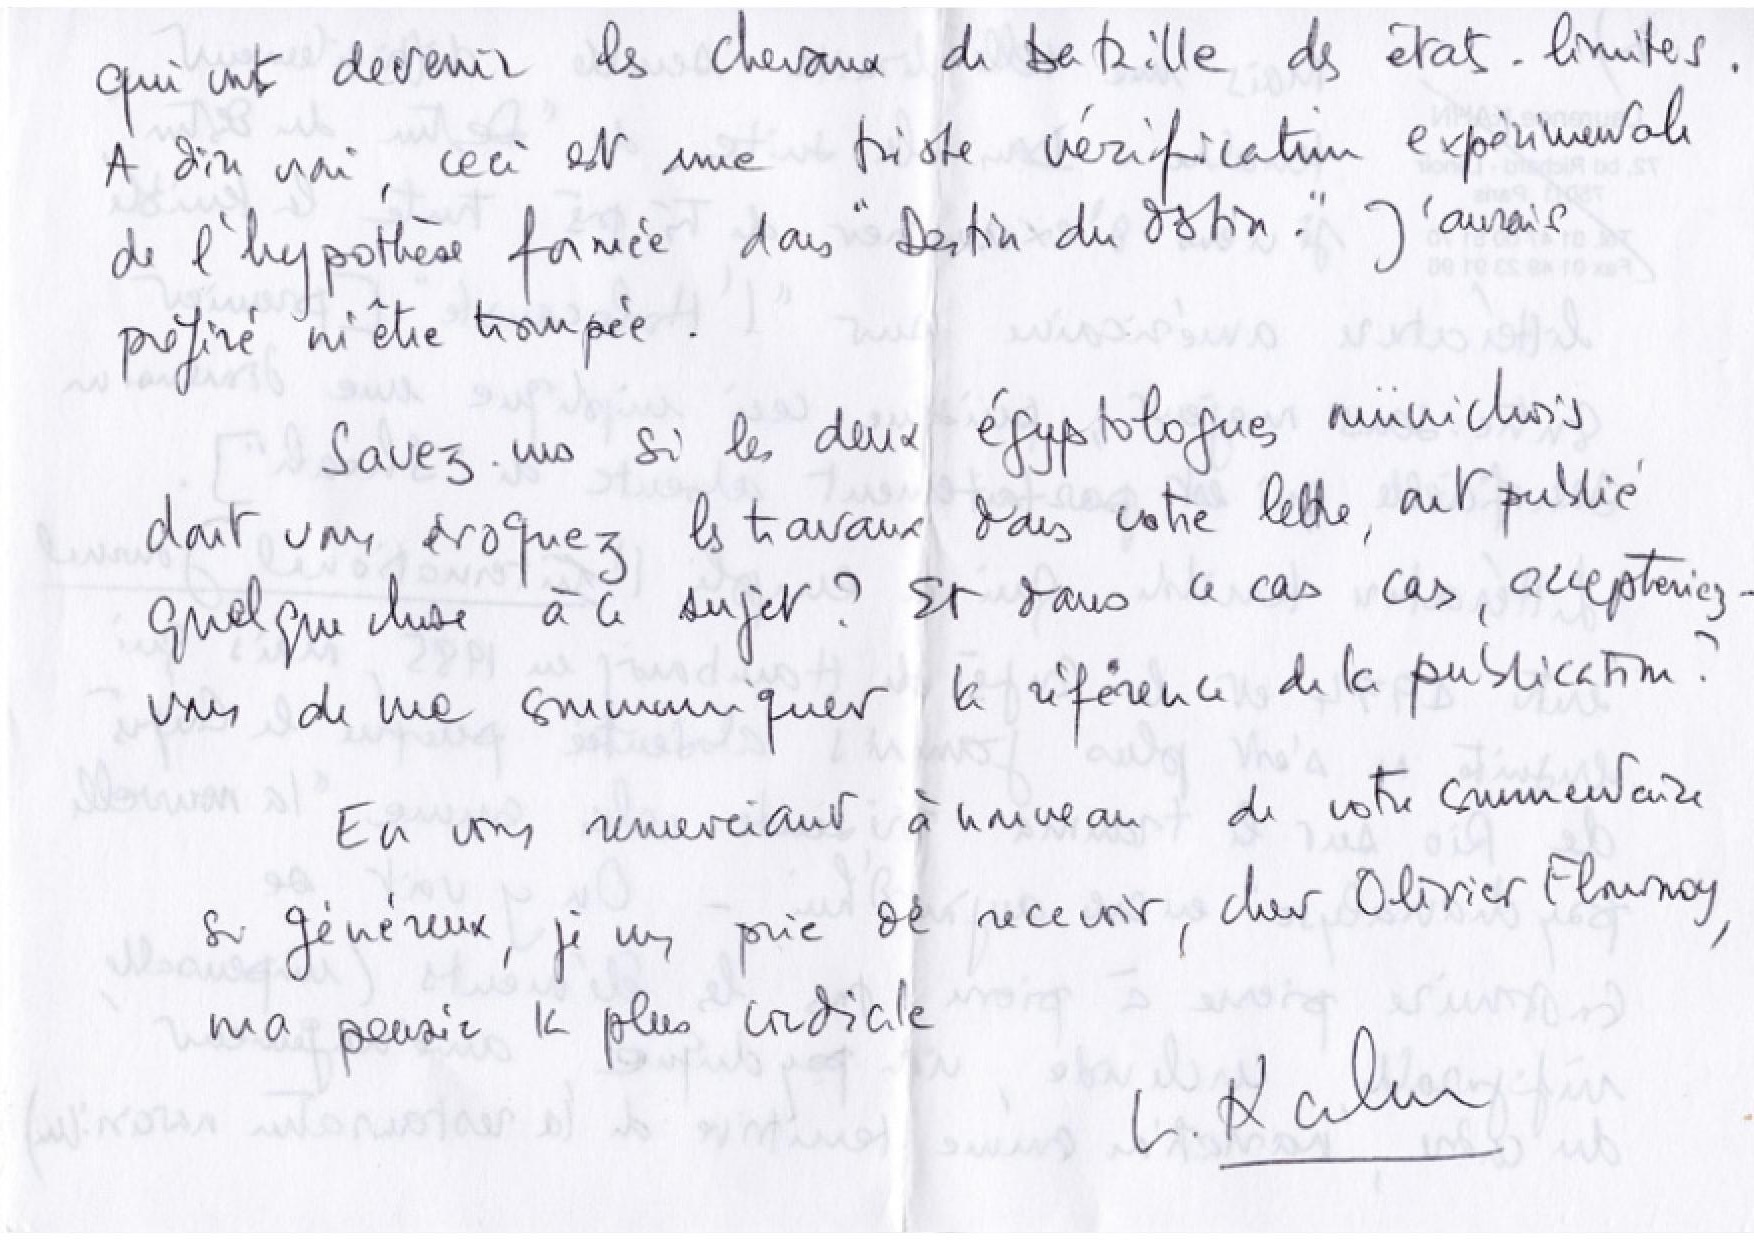 qui vont devenir les chevaux de bataille des état-limites.
A dire vrai, ceci est une triste vérification expérimentale
de l'hypothèse formée dans "Destin du destin." J'aurais
préféré m'être trompée.
Savez-vous si les deux égyptologues münichois
dont vous évoquez les travaux dans votre lettre, ont publié
quelque chose à ce sujet? Et dans ce cas cas, accepteriez-
vous de me communiquer la référence de la publication?
En vous remerciant à nouveau de votre commentaire
si généreux, je vous prie de recevoir, cher Olivier Flournoy,
ma pensée la plus cordiale
L. Kahn